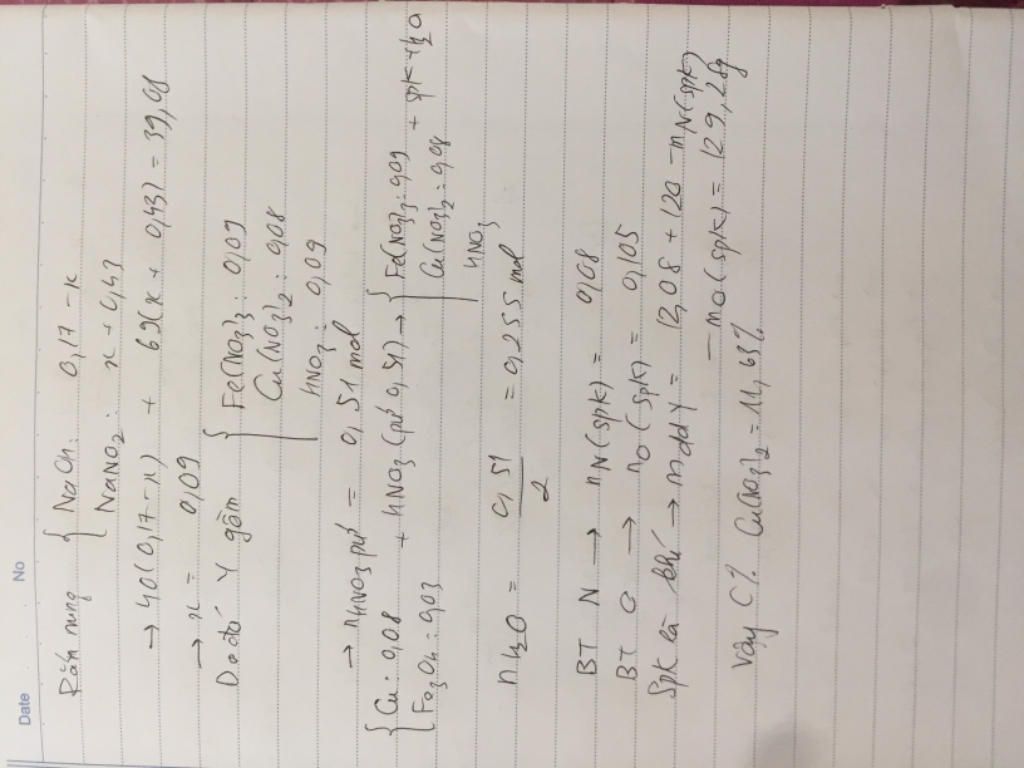 Date No
Rắn nung { NaOH: 0,17 - x
NaNO2: x + 0,43
→ 40(0,17-x) + 69(x + 0,43) = 39,08
→ x = 0,09
Do đó Y gồm { Fe(NO3)3: 0,09
Cu(NO3)2: 0,08
HNO3: 0,09
→ nHNO3 pứ = 0,51 mol
{ Cu: 0,08 + HNO3 (pứ 0,51) → { Fe(NO3)3: 0,09 + spk + H2O
Fe3O4: 0,03 Cu(NO3)2: 0,08
HNO3
nH2O = 0,51 / 2 = 0,255 mol
BT N → nN(spk) = 0,08
BT O → nO(spk) = 0,105
Spk là khí → mddY = 12,08 + 120 - mN(spk)
- mO(spk) = 129,28g
Vậy C% Cu(NO3)2 = 11,63%